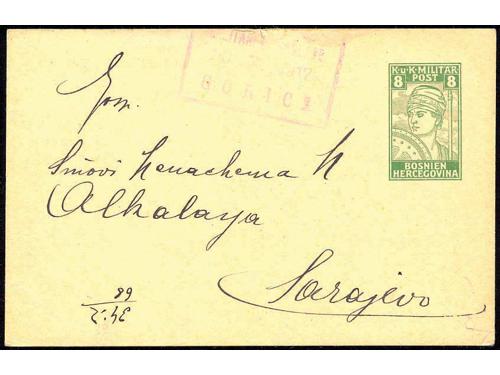 K.u.K. MILITÄR
POST
8 8
BOSNIEN
HERCEGOVINA
GORICA
Gosp.
Sinovi Menachema H
Alkalaya
Sarajevo